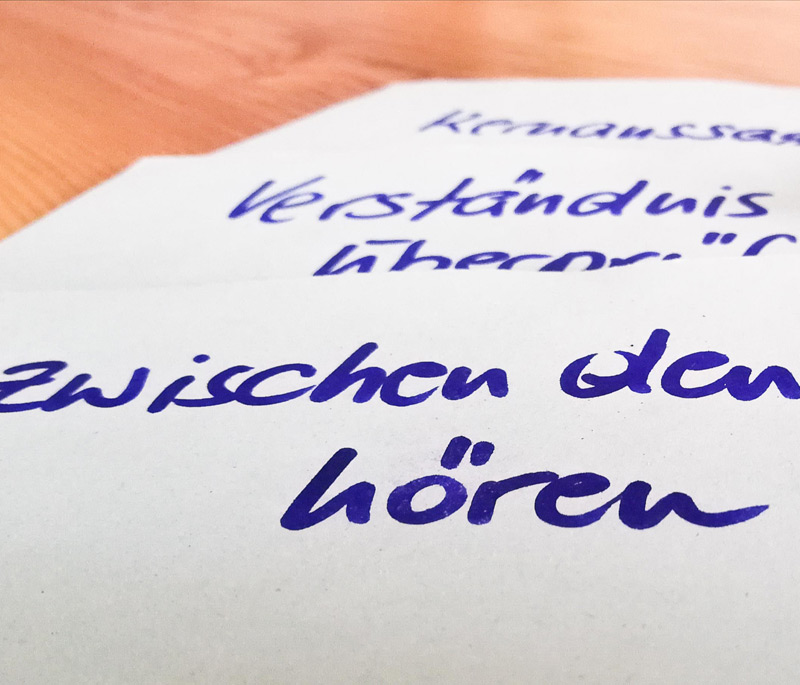 Kernaussa
Verständnis
überprüf
zwischen den
hören